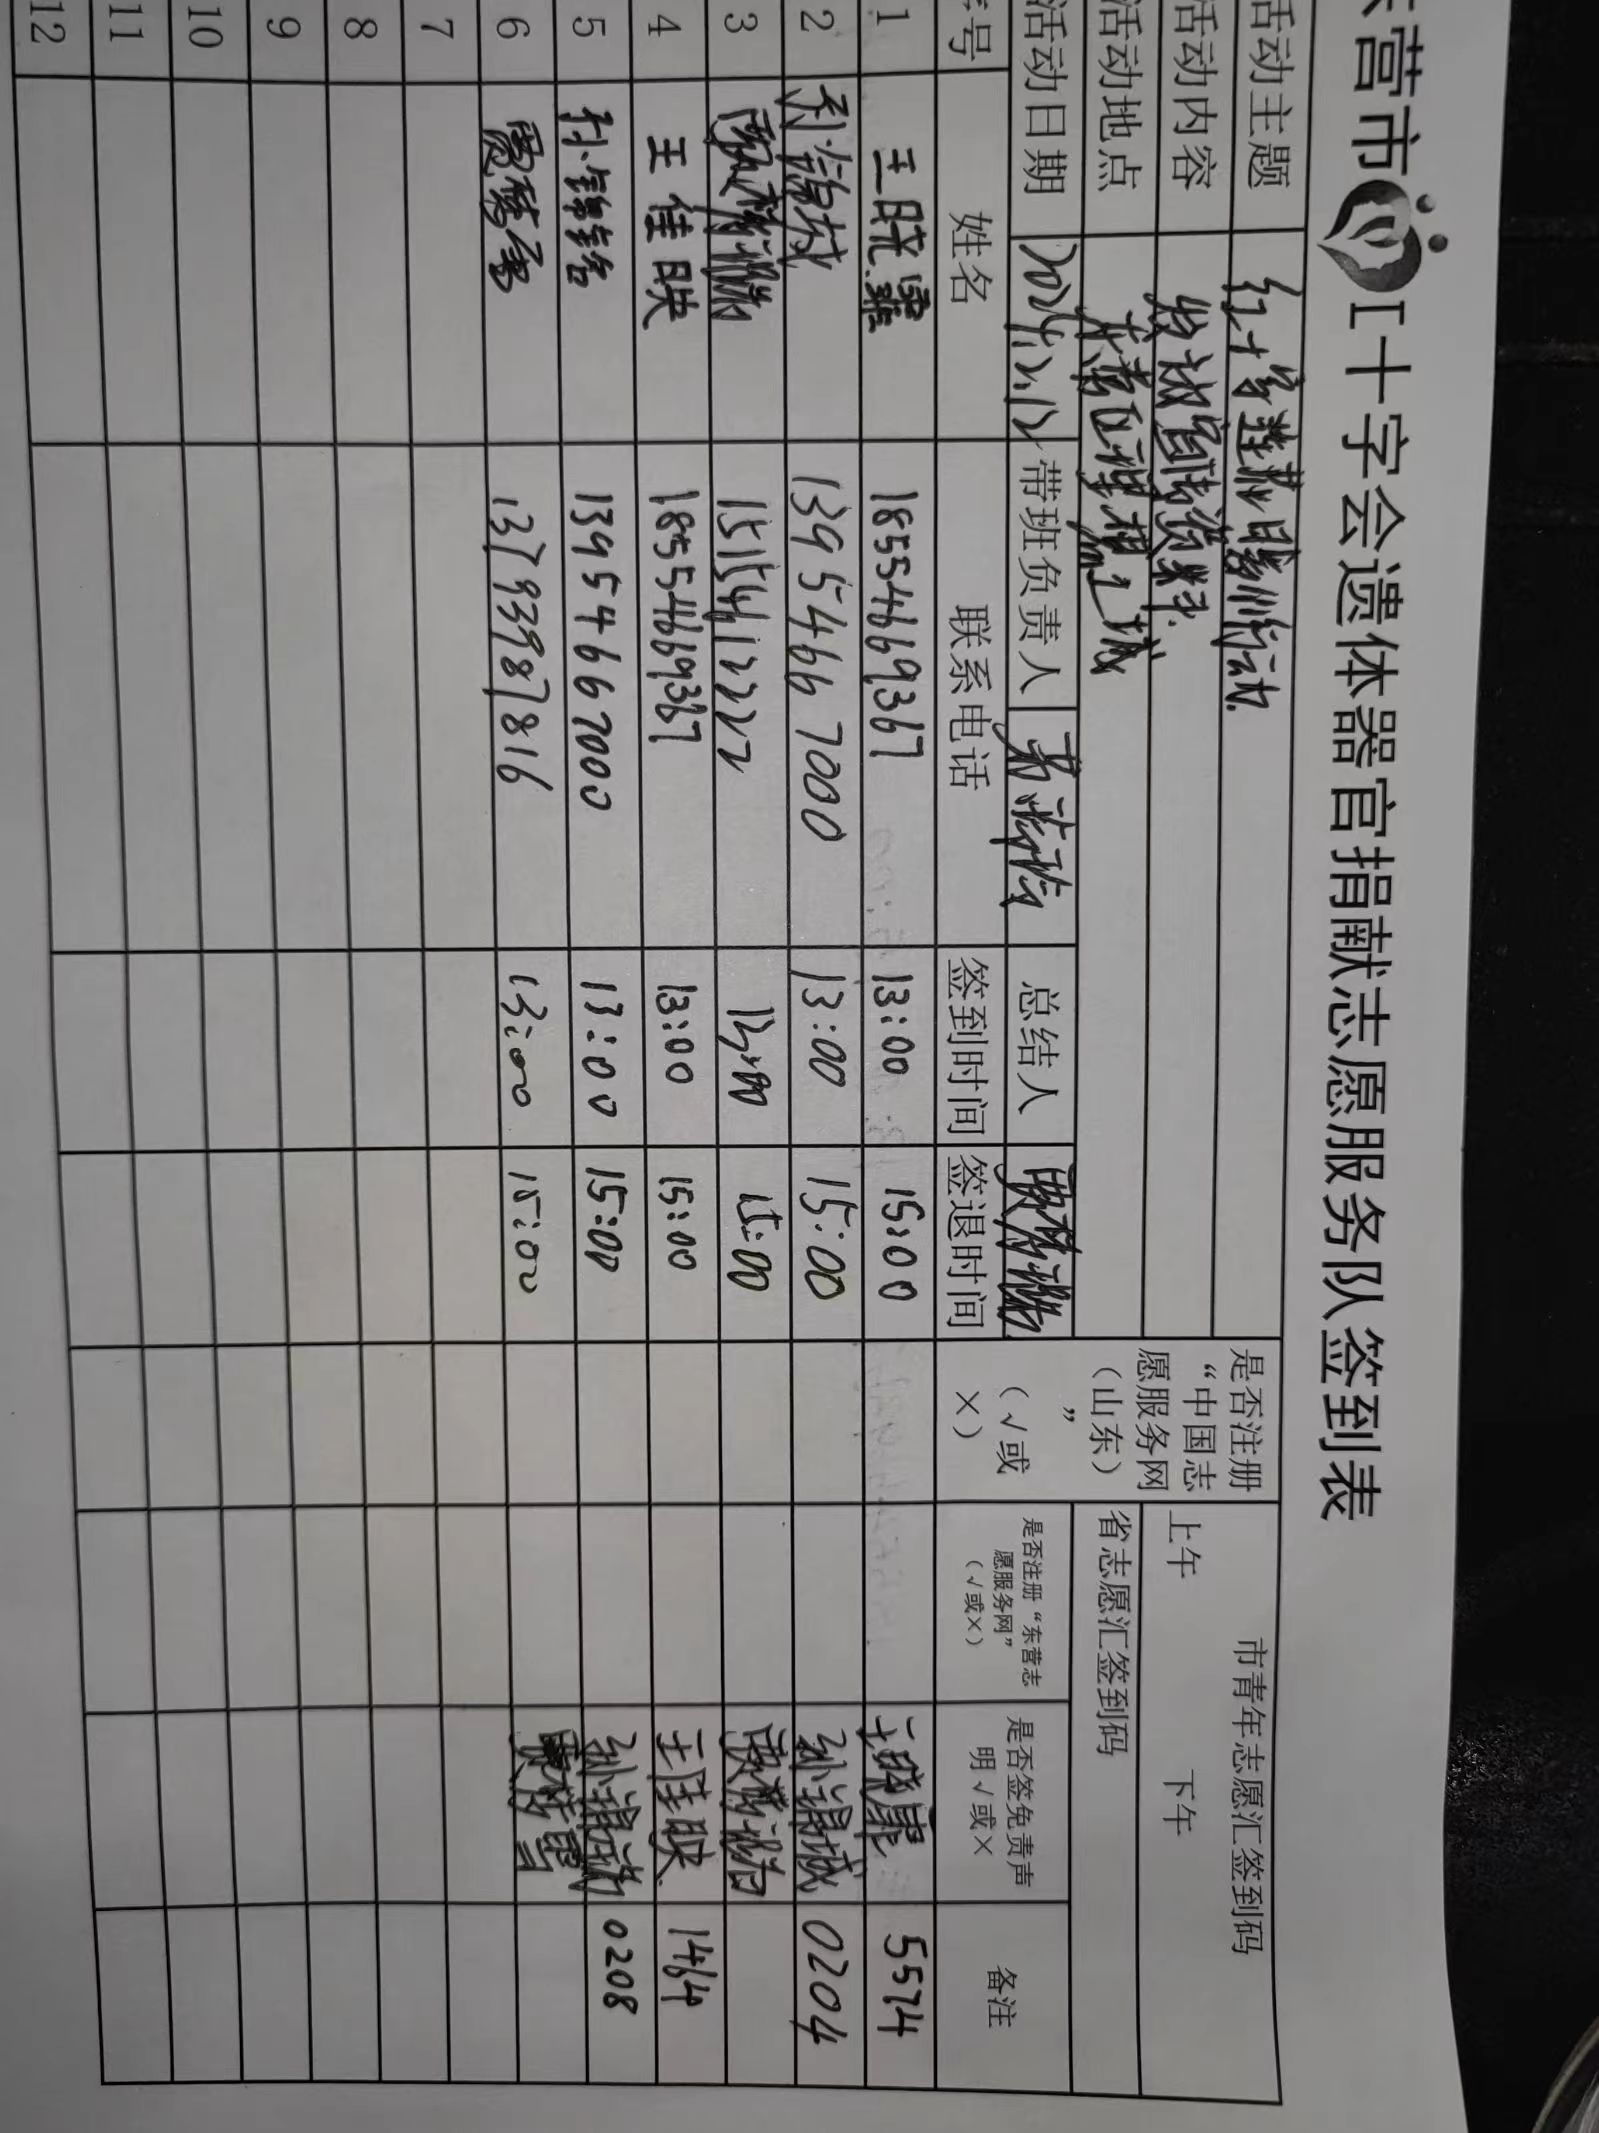 营市 十字会遗体器官捐献志愿服务队签到表
活动主题 红十字 行动
活动内容 发放宣传资料
活动地点
活动日期 带班负责人 总结人
是否注册“中国志愿服务网（山东）”（√或×）
市青年志愿汇签到码
上午 下午
省志愿汇签到码
号 姓名 联系电话 签到时间 签退时间 是否注册“东营志愿服务网”（√或×） 是否签免责声明√或× 备注
1 王晓霏 18554669367 13:00 15:00 王晓霏 5574
2 孙锡城 13954667000 13:00 15:00 孙锡城 0204
3 15154612222 13:00 15:00
4 王佳映 18554669367 13:00 15:00 王佳映 1464
5 孙锡 13954667000 13:00 15:00 孙锡 0208
6 13793987816 13:00 15:00
7
8
9
10
11
12